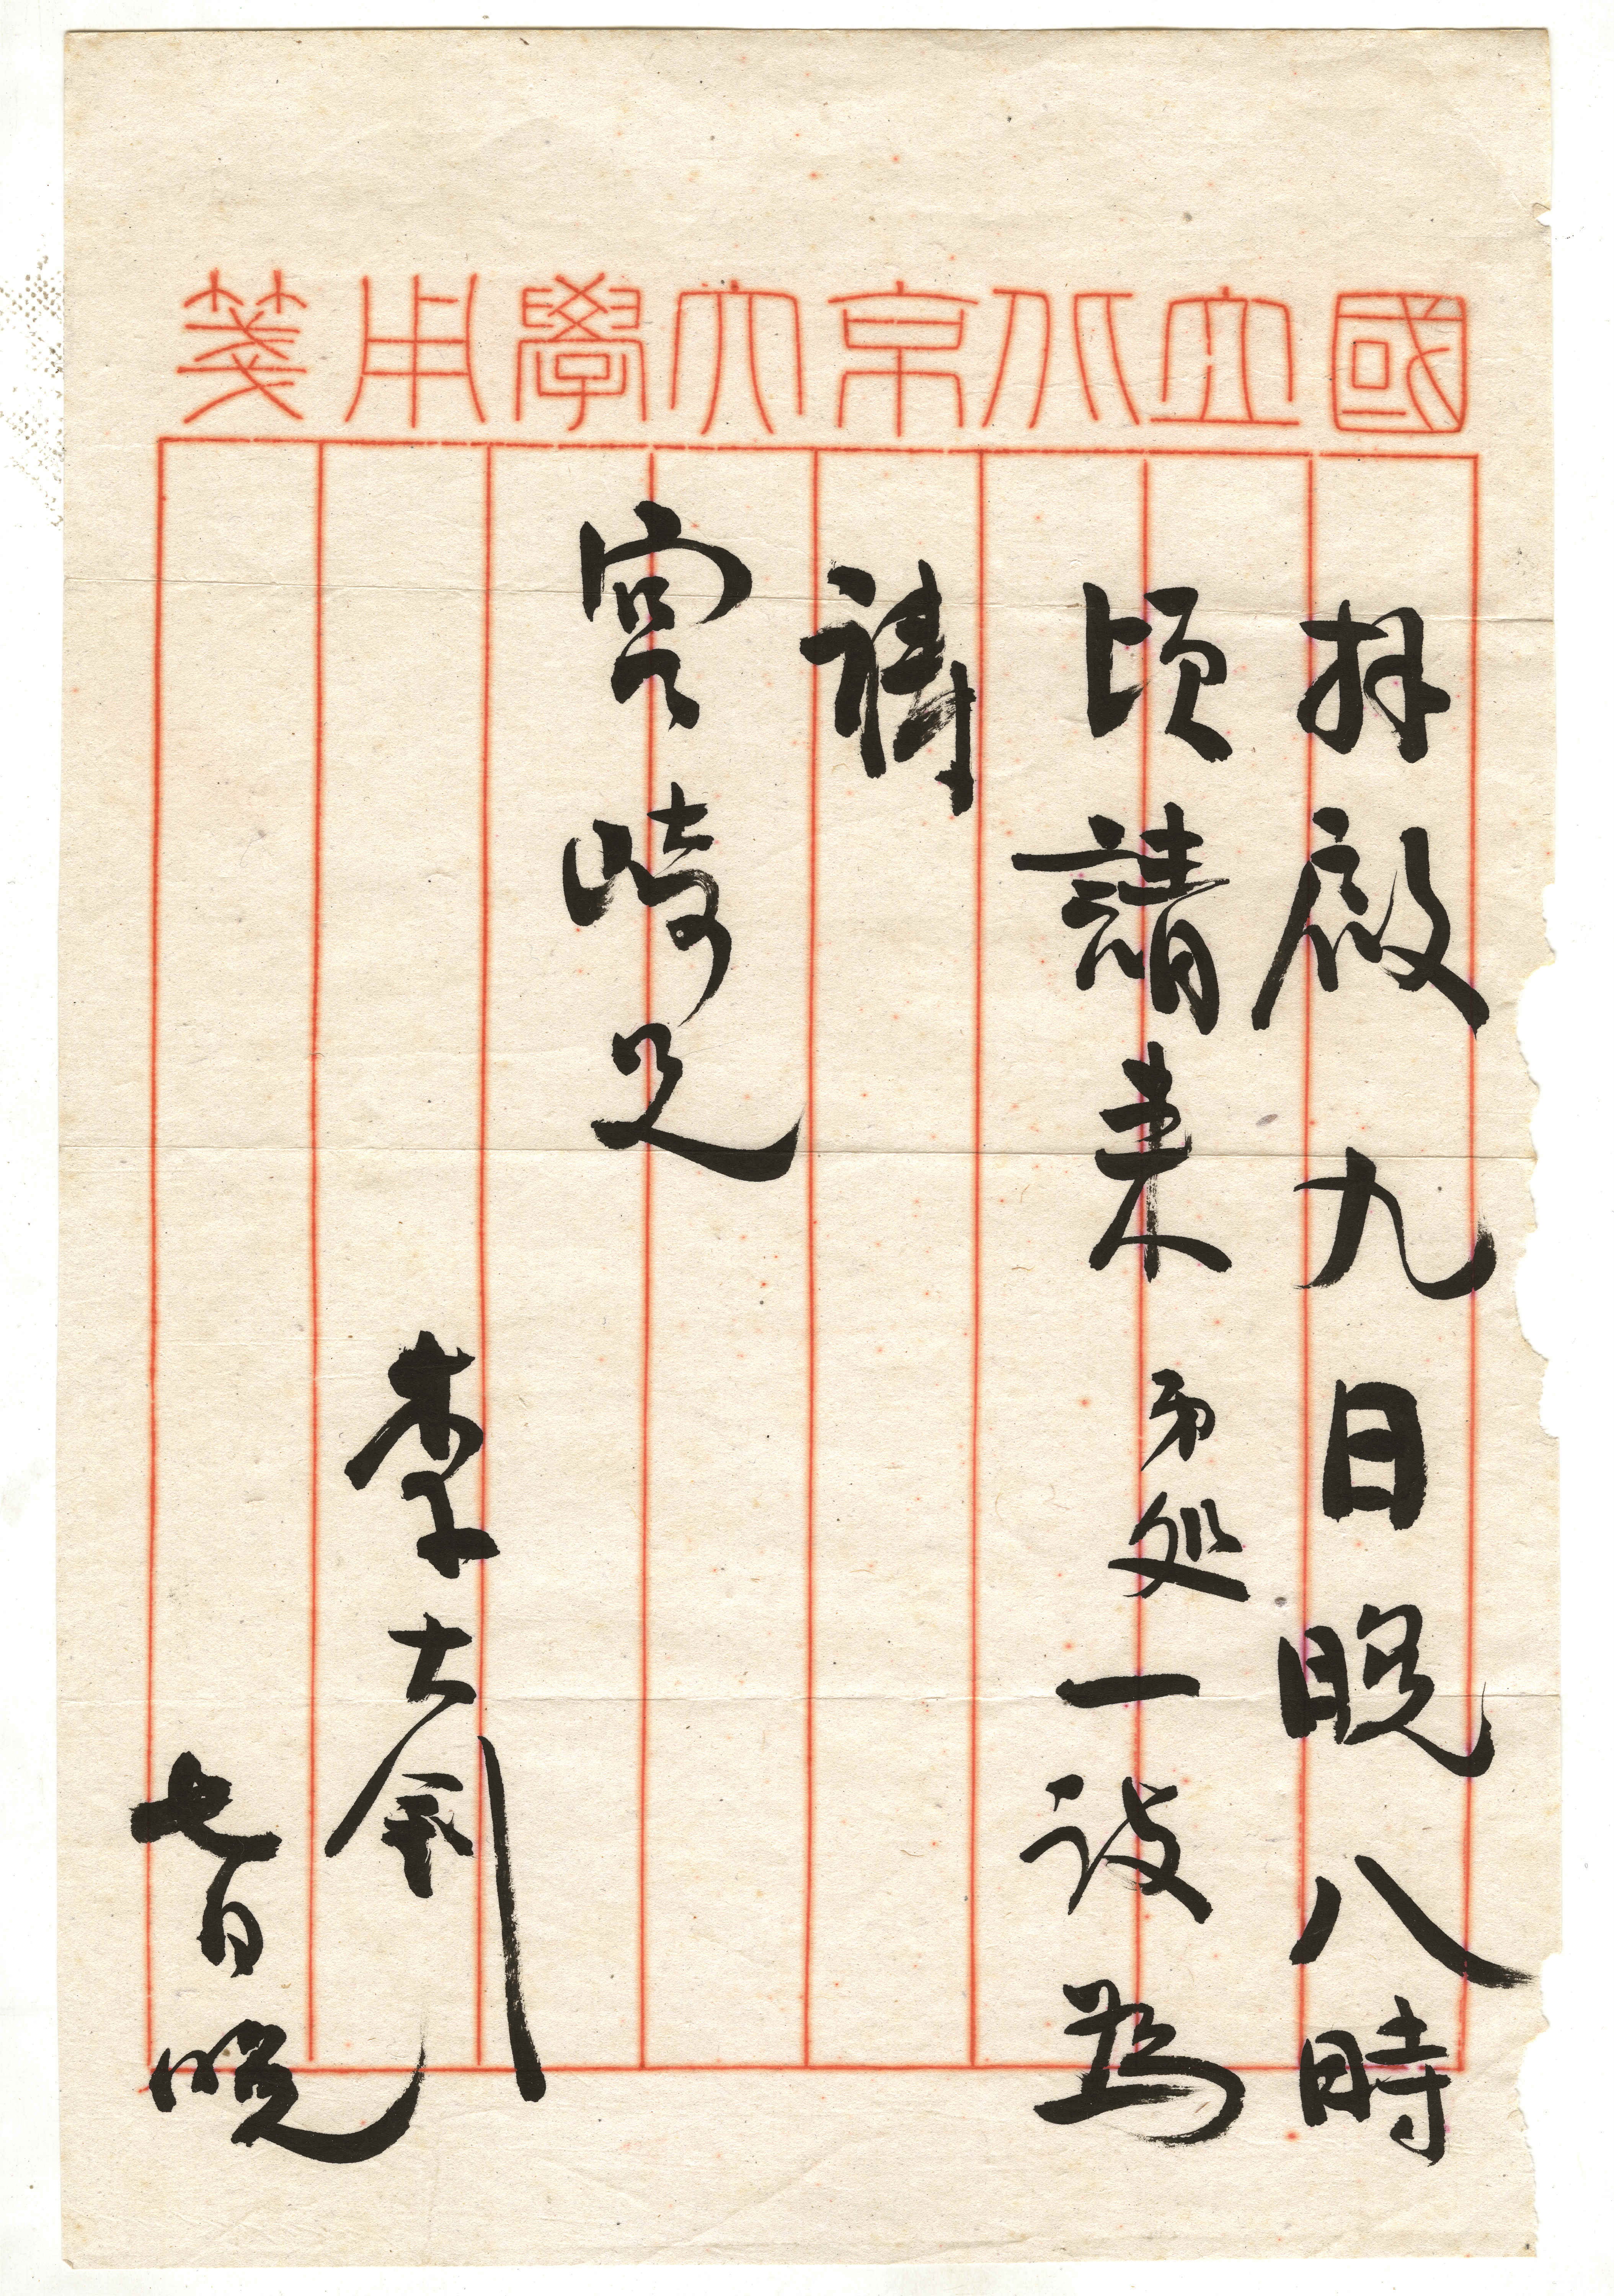 國立北京大學用箋
拜啟九日晚八時
頃請来弟処一談為
禱
宮崎兄
李大釗
七日晚